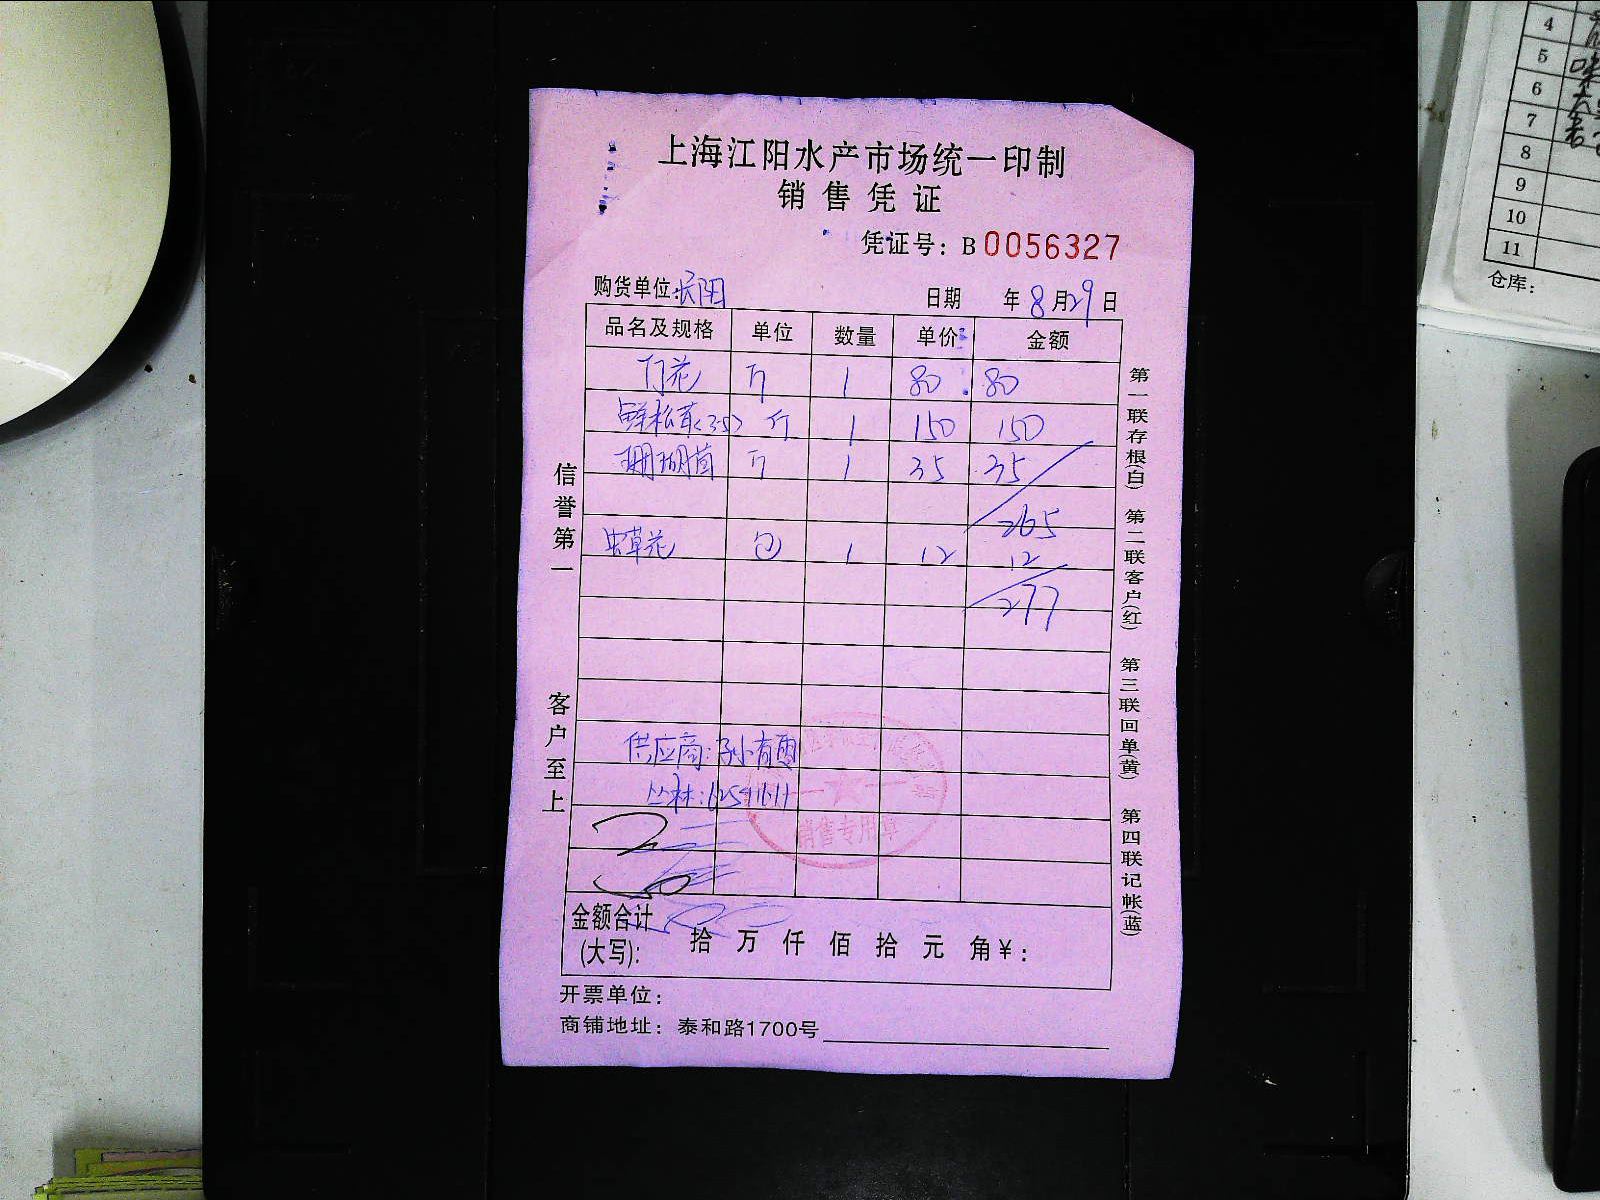 上海江阳水产市场统一印制
销售凭证
凭证号：B 0056327
购货单位: 日期 年 8 月 29 日
品名及规格 单位 数量 单价 金额
1 80 80
鲜松茸(35) 斤 1 150 150
珊瑚菌 1 35 35
265
虫草花 包 1 12 12
277
供应商：孙
丛林：
金额合计
(大写)： 拾 万 仟 佰 拾 元 角 ¥：
开票单位：
商铺地址：泰和路1700号
信誉第一
客户至上
第一联存根(白) 第二联客户(红) 第三联回单(黄) 第四联记帐(蓝)
销售专用章
4
5
6
7
8
9
10
11
仓库：